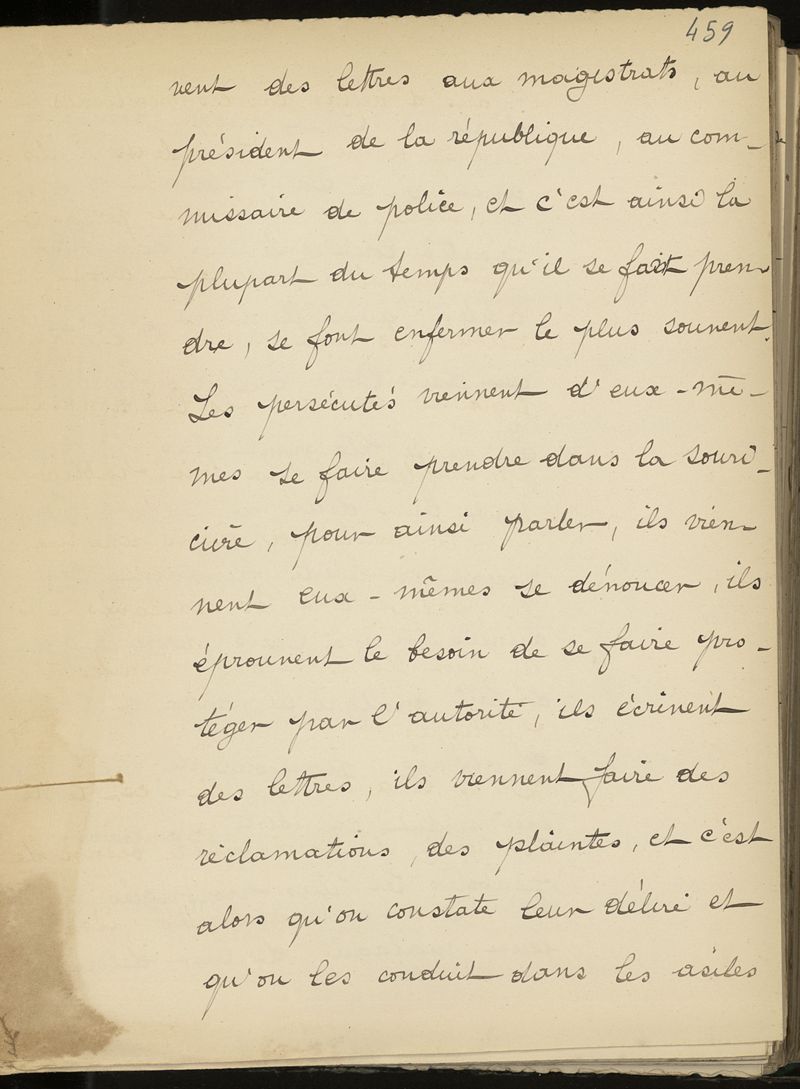 459
vent des lettres aux magistrats, au
président de la république, au com-
missaire de police, et c'est ainsi la
plupart du temps qu'il se fait pren-
dre, se font enfermer le plus souvent.
Les persécutés viennent d'eux-mê-
mes se faire prendre dans la souri-
cière, pour ainsi parler, ils vien-
nent eux-mêmes se dénoncer, ils
éprouvent le besoin de se faire pro-
téger par l'autorité, ils écrivent
des lettres, ils viennent faire des
réclamations, des plaintes, et c'est
alors qu'on constate leur délire et
qu'on les conduit dans les asiles